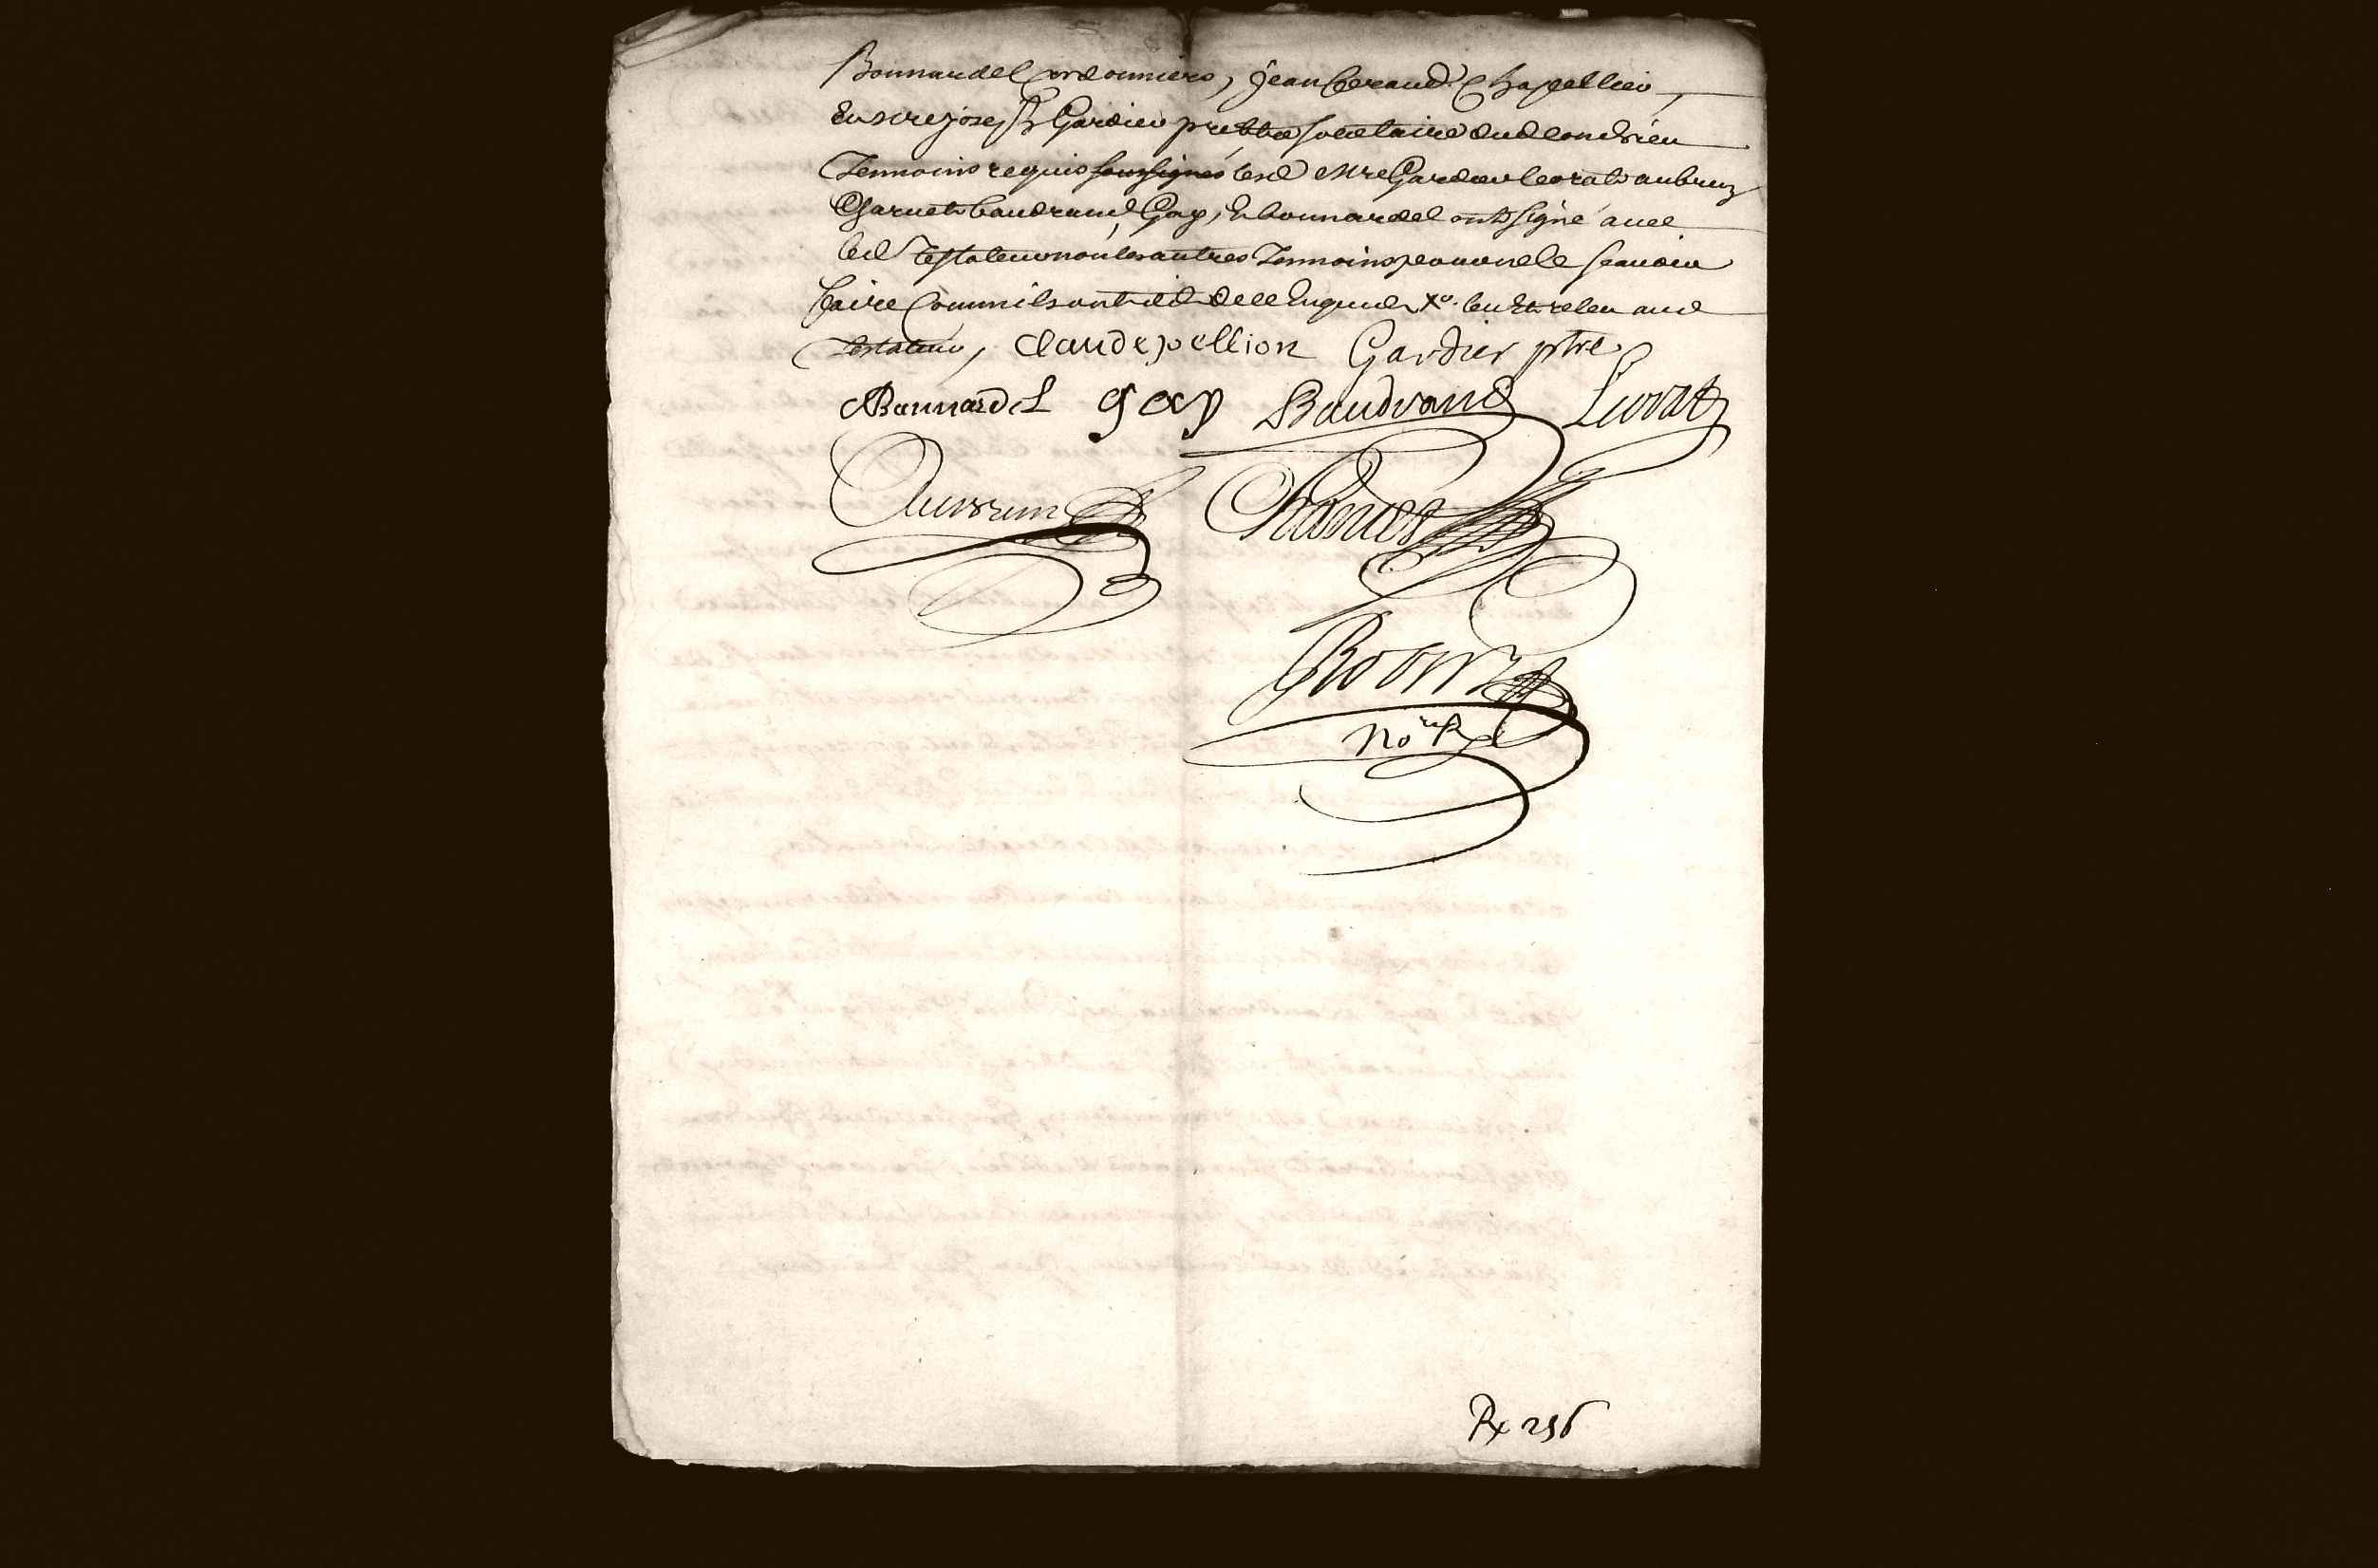 Bonnardel Cordonniers, jean beraud Chapellier,
Et mre joseph Gardier prebtre societaire dud condrieu
Temoins requis soussignés lesd mre Gardier leorat aubrun
Charvet baudrand Gay, & bonnardel ont signé avec
led testateur non les autres Temoins pour ne le scavoir
faire Comm'ils ont dit de ce Enquis leu et releu aud
testateur, Claude pellion Gardier ptre
Bonnardel gay Baudrand Leorat
Aubrun Charvet
No re R
Rx 256